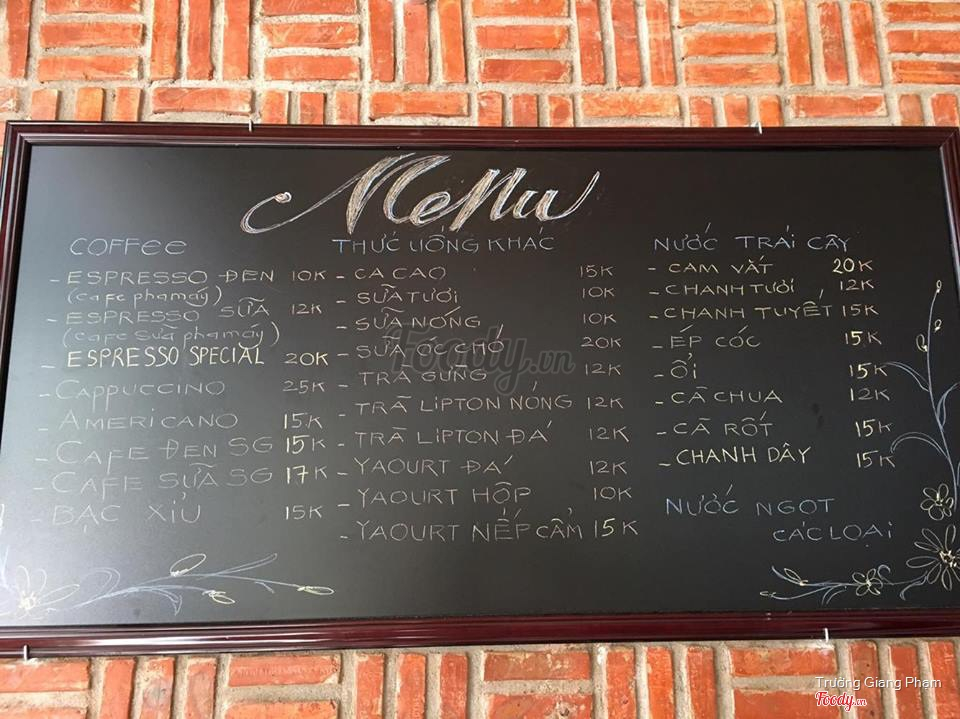 Menu
COFFEE
- ESPRESSO ĐEN 10K
(cafe pha máy)
- ESPRESSO SỮA 12K
(cafe sữa pha máy)
- ESPRESSO SPECIAL 20K
- CAPPUCCINO 25K
- AMERICANO 15K
- CAFE ĐEN SG 15K
- CAFE SỮA SG 17K
- BẠC XỈU 15K
THỨC UỐNG KHÁC
- CA CAO 15K
- SỮA TƯƠI 10K
- SỮA NÓNG 10K
- SỮA ÓC CHÓ 20K
- TRÀ GỪNG 12K
- TRÀ LIPTON NÓNG 12K
- TRÀ LIPTON ĐÁ 12K
- YAOURT ĐÁ 12K
- YAOURT HỘP 10K
- YAOURT NẾP CẨM 15K
NƯỚC TRÁI CÂY
- CAM VẮT 20K
- CHANH TƯƠI 12K
- CHANH TUYẾT 15K
- ÉP CÓC 15K
- ỔI 15K
- CÀ CHUA 12K
- CÀ RỐT 15K
- CHANH DÂY 15K
NƯỚC NGỌT
CÁC LOẠI
Foody.vn
Trường Giang Phạm
Foody.vn